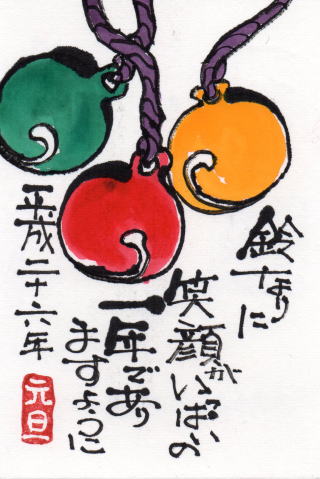 鈴なりに
笑顔がいっぱいの
一年であり
ますように
平成二十六年
元旦